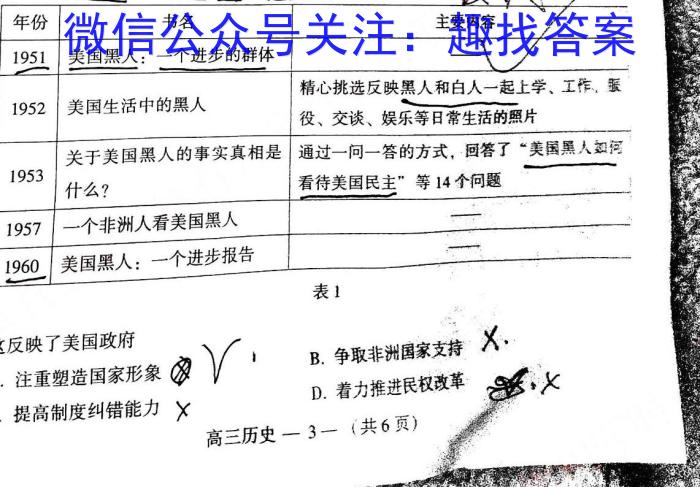 年份 书名 主要内容
微信公众号关注：趣找答案
1951 美国黑人：一个进步的群体
1952 美国生活中的黑人 精心挑选反映黑人和白人一起上学、工作、服
役、交谈、娱乐等日常生活的照片
1953 关于美国黑人的事实真相是
什么？
通过一问一答的方式，回答了“美国黑人如何
看待美国民主”等14个问题
1957 一个非洲人看美国黑人 —
1960 美国黑人：一个进步报告 —
表1
反映了美国政府
. 注重塑造国家形象 B. 争取非洲国家支持
. 提高制度纠错能力 D. 着力推进民权改革
高三历史 — 3 — （共6页）